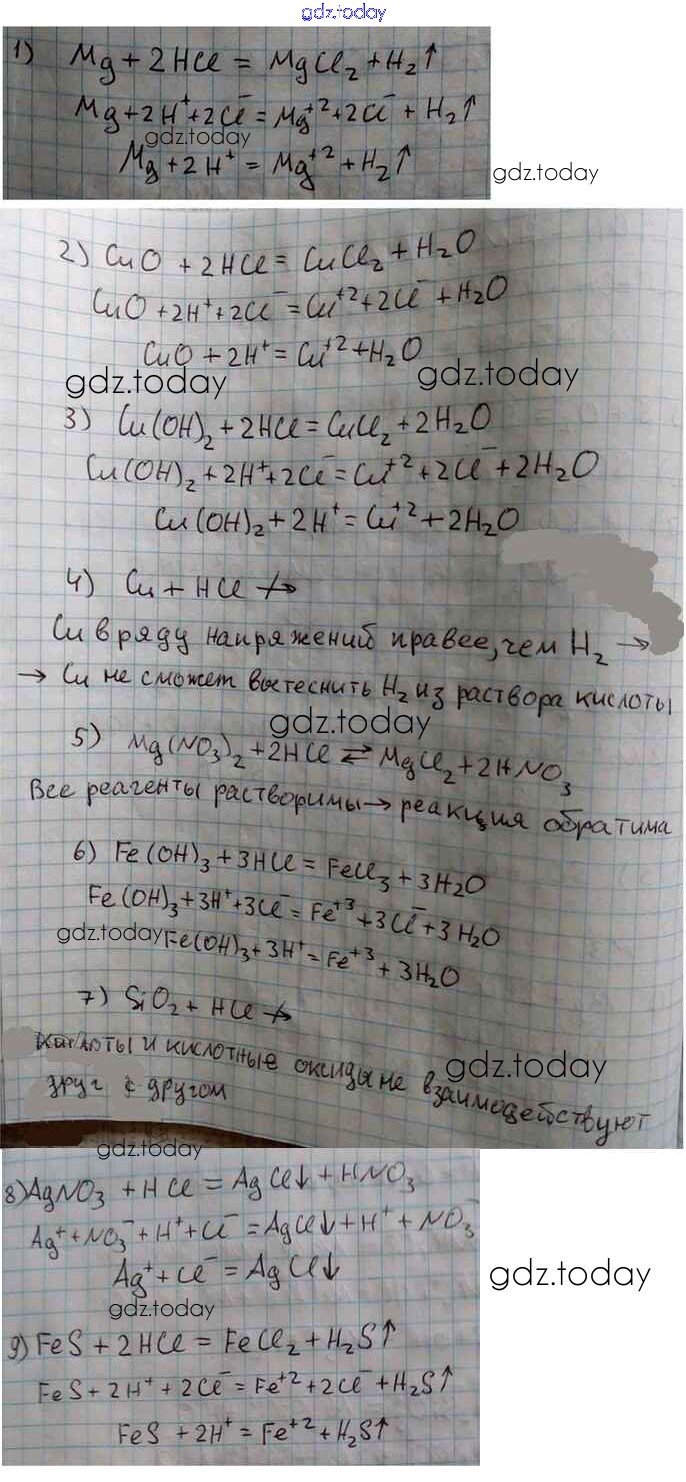 gdz.today
1) Mg + 2HCl = MgCl₂ + H₂↑
Mg + 2H⁺ + 2Cl⁻ = Mg⁺² + 2Cl⁻ + H₂↑
gdz.today
Mg + 2H⁺ = Mg⁺² + H₂↑
gdz.today
2) CuO + 2HCl = CuCl₂ + H₂O
CuO + 2H⁺ + 2Cl⁻ = Cu⁺² + 2Cl⁻ + H₂O
CuO + 2H⁺ = Cu⁺² + H₂O
gdz.today gdz.today
3) Cu(OH)₂ + 2HCl = CuCl₂ + 2H₂O
Cu(OH)₂ + 2H⁺ + 2Cl⁻ = Cu⁺² + 2Cl⁻ + 2H₂O
Cu(OH)₂ + 2H⁺ = Cu⁺² + 2H₂O
4) Cu + HCl ↛
Cu в ряду напряжений правее, чем H₂ →
→ Cu не сможет вытеснить H₂ из раствора кислоты
gdz.today
5) Mg(NO₃)₂ + 2HCl ⇄ MgCl₂ + 2HNO₃
Все реагенты растворимы → реакция обратима
6) Fe(OH)₃ + 3HCl = FeCl₃ + 3H₂O
Fe(OH)₃ + 3H⁺ + 3Cl⁻ = Fe⁺³ + 3Cl⁻ + 3H₂O
gdz.today
Fe(OH)₃ + 3H⁺ = Fe⁺³ + 3H₂O
7) SiO₂ + HCl ↛
Кислоты и кислотные оксиды не взаимодействуют
gdz.today
друг с другом
gdz.today
8) AgNO₃ + HCl = AgCl↓ + HNO₃
Ag⁺ + NO₃⁻ + H⁺ + Cl⁻ = AgCl↓ + H⁺ + NO₃⁻
Ag⁺ + Cl⁻ = AgCl↓
gdz.today
gdz.today
9) FeS + 2HCl = FeCl₂ + H₂S↑
FeS + 2H⁺ + 2Cl⁻ = Fe⁺² + 2Cl⁻ + H₂S↑
FeS + 2H⁺ = Fe⁺² + H₂S↑